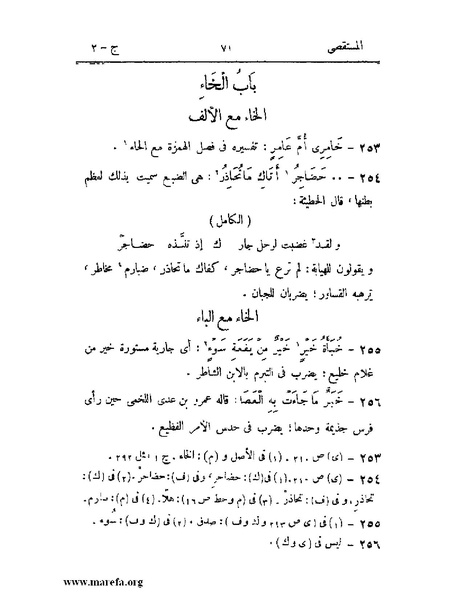 المستقصى ٧١ ج - ٢
بَابُ الْخَاءِ
الخاء مع الألف
٢٥٣ - خَامِرِى أُمَّ عَامِرٍ : تفسيره فى فصل الهمزة مع الحاء١ .
٢٥٤ - ٠٠ حَضَاجِرُ١ أَتَاكِ مَا تُحَاذِرُ٢ : هى الضبع سميت بذلك لعظم
بطنها ، قال الحطيئة :
( الكامل )
و لقد٣ غضبت لرحل جار ك إذ تنبّذه حضاجرْ
و يقولون للهيابة : لم ترع يا حضاجر ، كفاك ما تحاذر ، ضبارم٤ مخاطر ،
ترهبه القساور ؛ يضربان للجبان .
الخاء مع الباء
٢٥٥ - خُبَأَةُ خَيْرٍ١ خَيْرٌ مِنْ يَفَعَةِ سَوْءٍ٢ : أى جارية مستورة خير من
غلام خليع ؛ يضرب فى التبرم بالابن الشاطر .
٢٥٦ - خَبَرٌ مَا جَاءَتْ بِهِ الْعَصَا : قاله عمرو بن عدى اللخمى حين رأى
فرس جذيمة وحدها ؛ يضرب فى حدس الأمر الفظيع .
٢٥٣ - (ى) ص ٢١٠ . (١) فى الأصل و (م) : الخاء . ج ١ مثل ٢٩٢ .
٢٥٤ - (ى) ص ٢١٠ . (١) فى (ك) : حضاجر ، و فى (ف) : حضاجرْ . (٢) فى (ك) :
تحاذر ، و فى (ف) : تحاذرْ . (٣) فى (م و حط ص ١٦) : هلّا . (٤) فى (م) : صارم .
٢٥٥ - (١) فى (ى ص ٢١٣ و ك و ف) : صدق . (٢) فى (ك و ف) : سُوء .
٢٥٦ - ليس فى (ى و ك) .
www.marefa.org